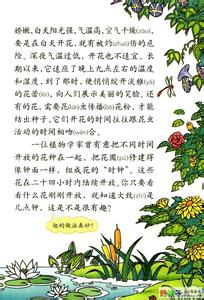 娇嫩，白天阳光强，气温高，空气干燥(zào)，
要是在白天开花，就有被灼(zhuó)伤的危
险。深夜气温过低，开花也不适宜。长
期以来，它适应了晚上九点左右的温度
和湿度，到了那时，便悄悄绽开淡雅
的花蕾，向人们展示美丽的笑脸。还
有的花，需要昆虫传播花粉，才能
结出种子，它们开花的时间往往跟昆
虫活动的时间相吻(wěn)合。
一位植物学家曾有意把不同时间
开放的花种在一起，把花圃(pǔ)修建得
像钟面一样，组成花的“时钟”。这些
花在二十四小时内陆续开放。你只要看
看什么花刚刚开放，就知道大致(zhì)是
几点钟，这是不是很有趣？
他的做法真妙！